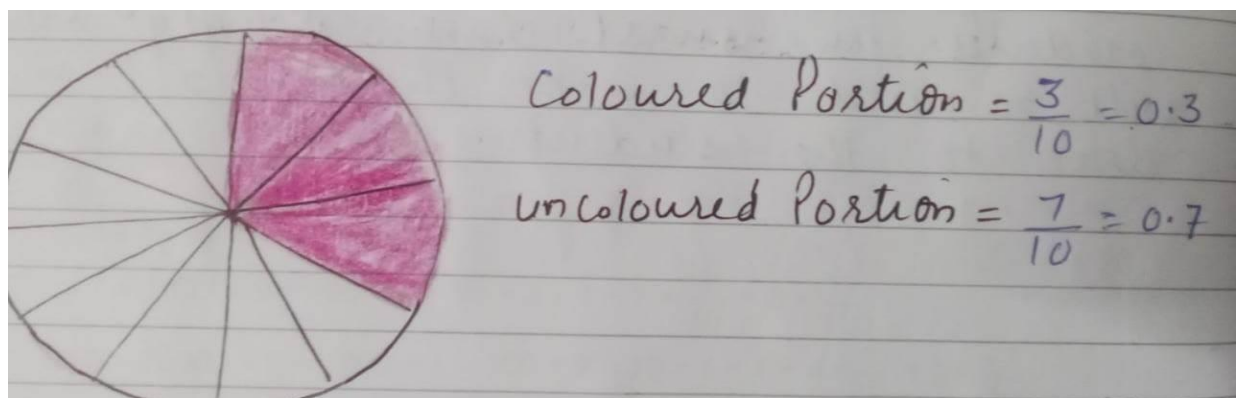 Coloured Portion = 3/10 = 0.3
uncoloured Portion = 7/10 = 0.7